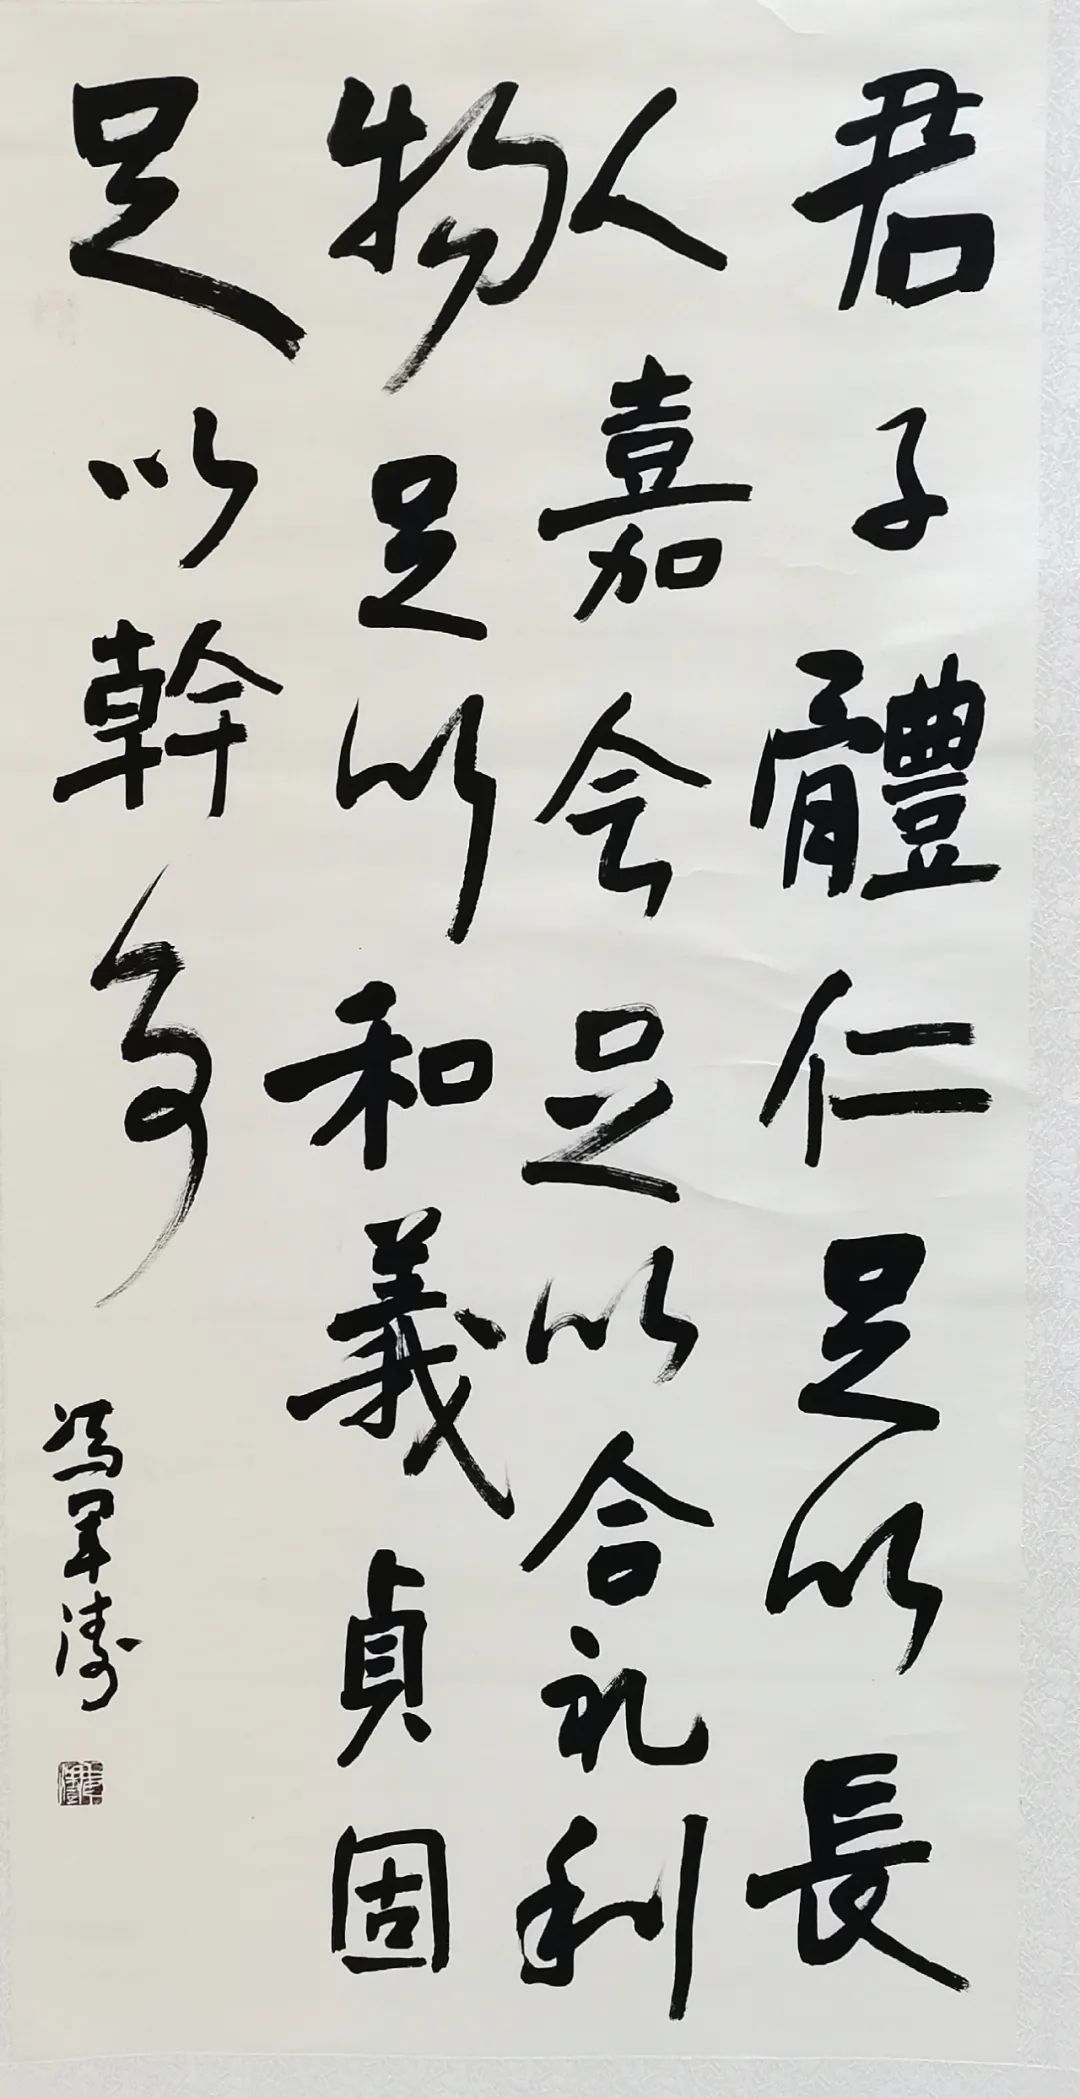 君子體仁足以長
人嘉会足以合礼利
物足以和義貞固
足以幹事
馮軍濤